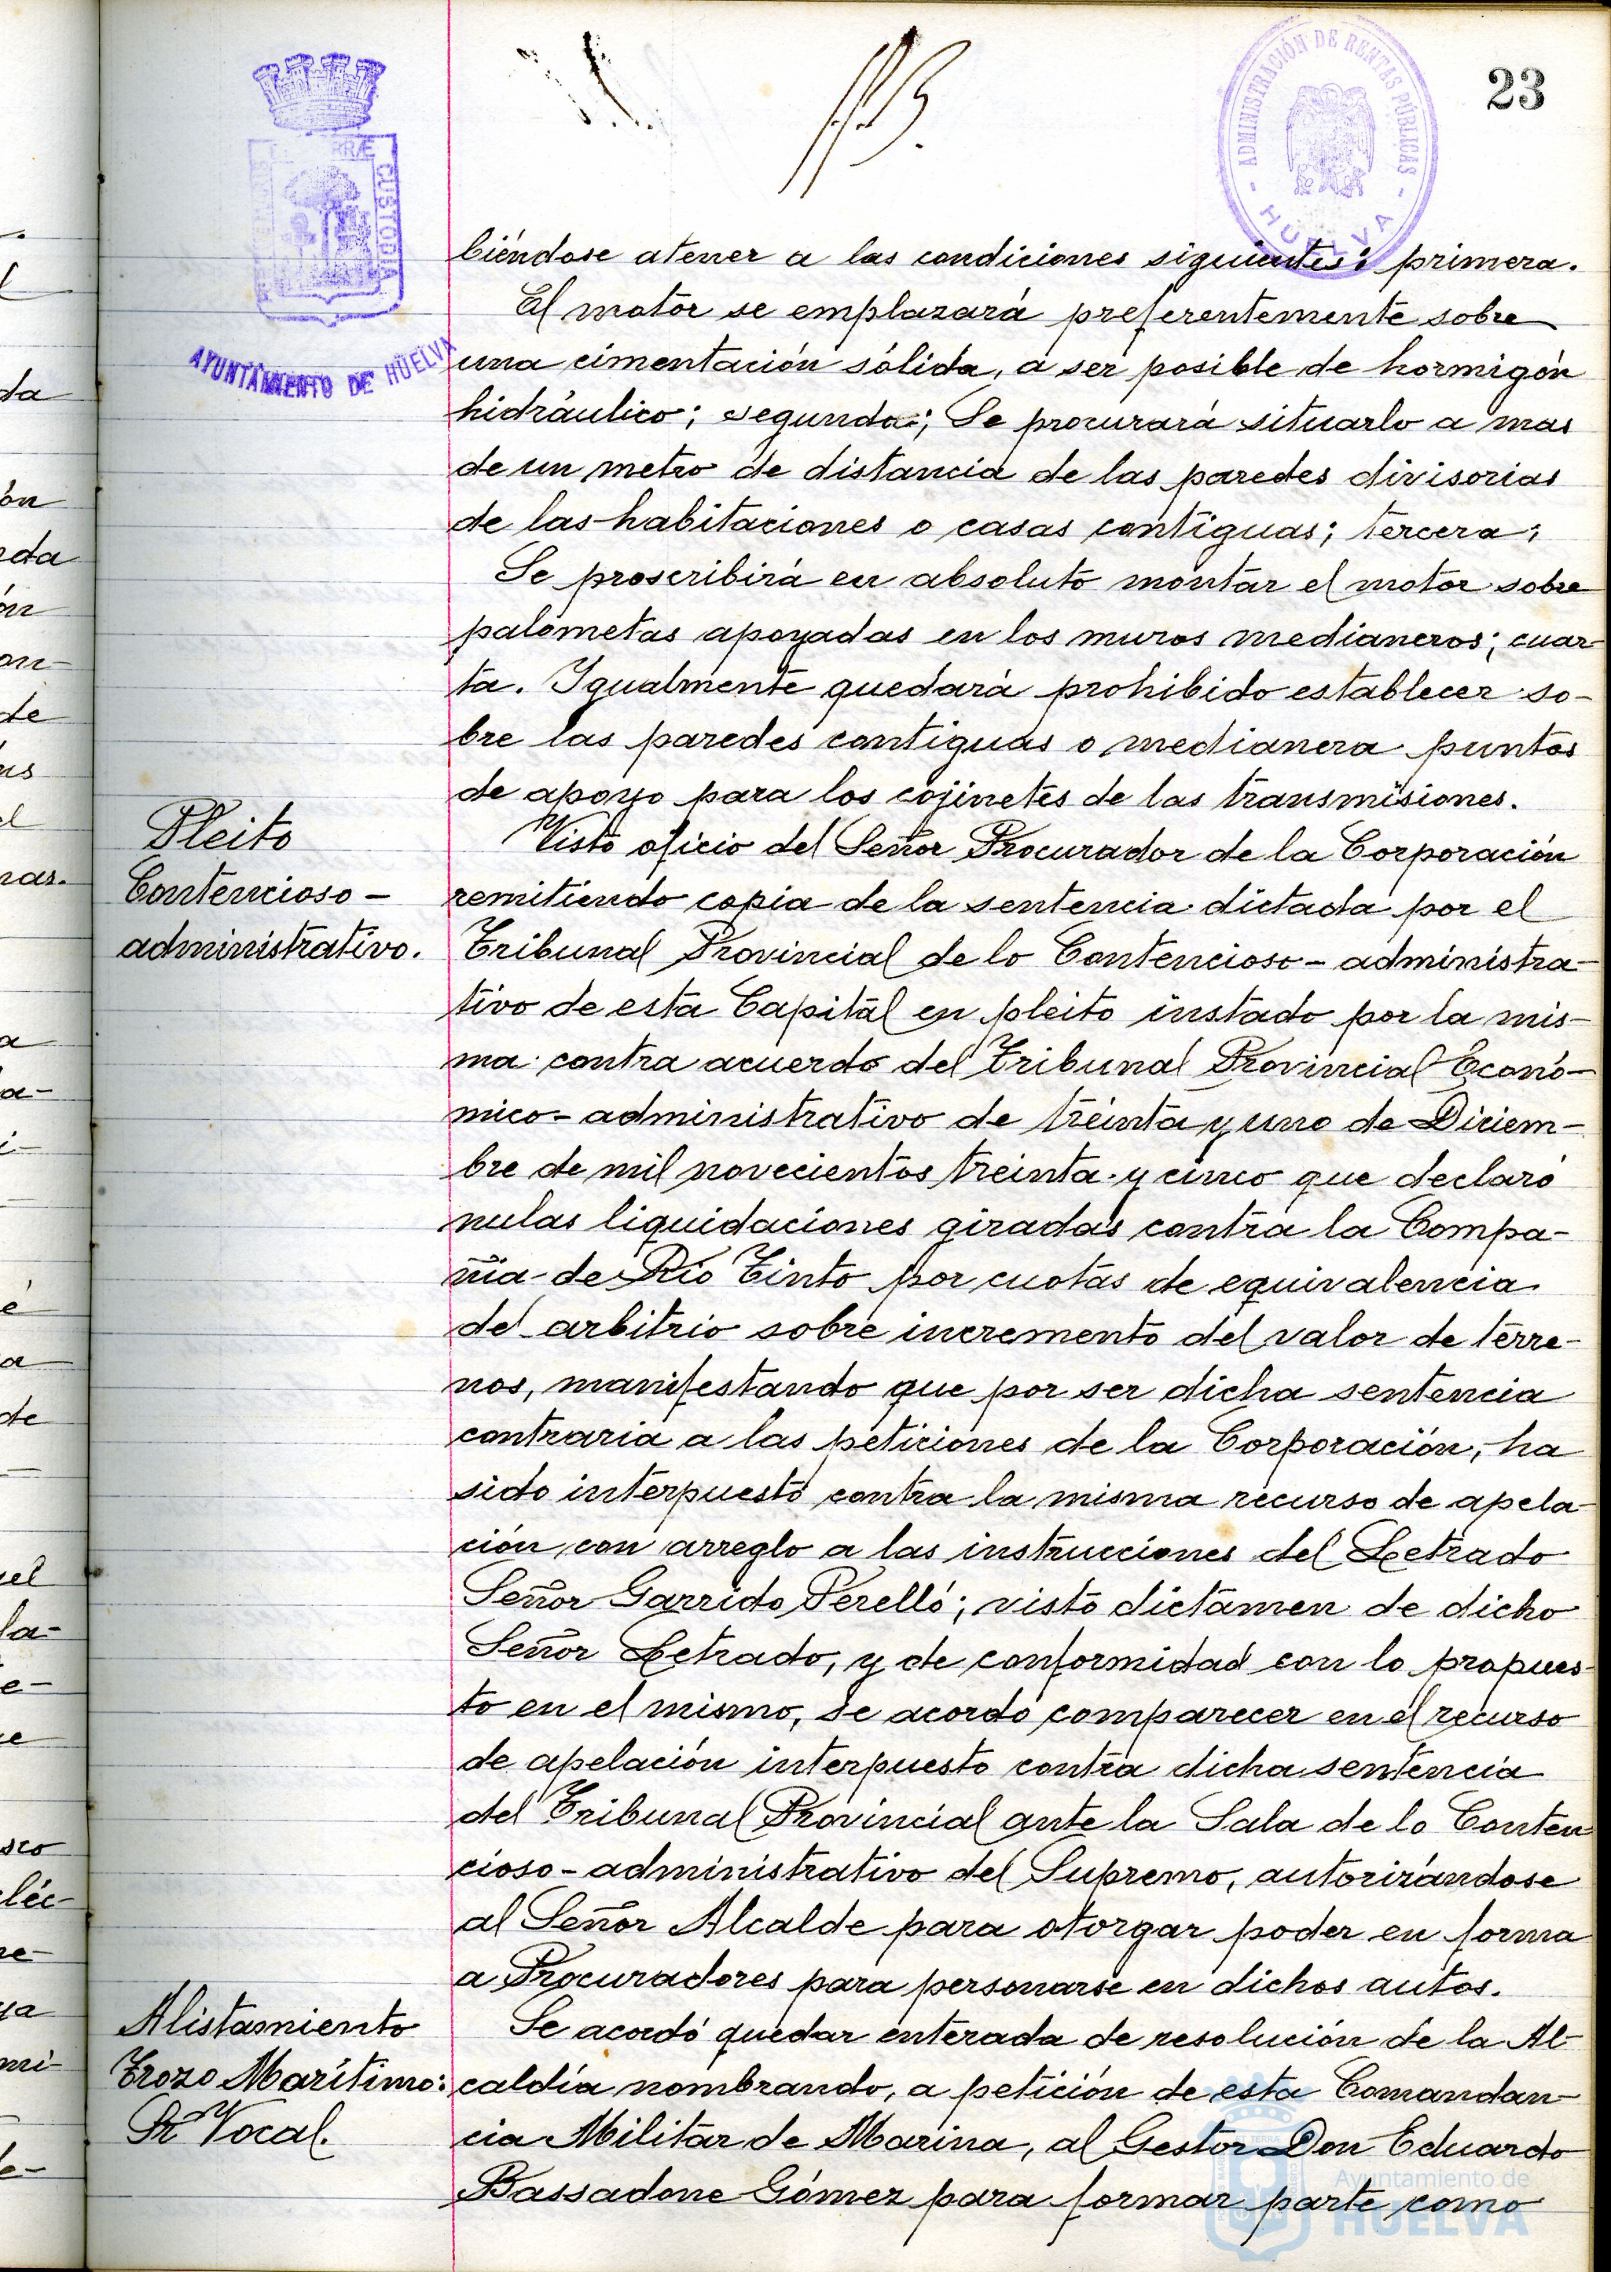 23
ADMINISTRACIÓN DE RENTAS PÚBLICAS
- HUELVA -
CUSTODIA
AYUNTAMIENTO DE HUELVA
biéndose atener a las condiciones siguientes: primera.
El motor se emplazará preferentemente sobre
una cimentación sólida, a ser posible de hormigón
hidráulico; segunda; Se procurará situarlo a mas
de un metro de distancia de las paredes divisorias
de las habitaciones o casas contiguas; tercera;
Se proscribirá en absoluto montar el motor sobre
palometas apoyadas en los muros medianeros; cuar-
ta. Igualmente quedará prohibido establecer so-
bre las paredes contiguas o medianera puntos
de apoyo para los cojinetes de las transmisiones.
Pleito
Contencioso-
administrativo.
Visto oficio del Señor Procurador de la Corporación
remitiendo copia de la sentencia dictada por el
Tribunal Provincial de lo Contencioso-administra-
tivo de esta Capital en pleito instado por la mis-
ma contra acuerdo del Tribunal Provincial Econó-
mico-administrativo de treinta y uno de Diciem-
bre de mil novecientos treinta y cinco que declaró
nulas liquidaciones giradas contra la Compa-
ñia de Río Tinto por cuotas de equivalencia
del arbitrio sobre incremento del valor de terre-
nos, manifestando que por ser dicha sentencia
contraria a las peticiones de la Corporación, ha
sido interpuesto contra la misma recurso de apela-
ción con arreglo a las instrucciones del Letrado
Señor Garrido Perelló; visto dictámen de dicho
Señor Letrado, y de conformidad con lo propues-
to en el mismo, se acordó comparecer en el recurso
de apelación interpuesto contra dicha sentencia
del Tribunal Provincial ante la Sala de lo Conten
cioso-administrativo del Supremo, autorizándose
al Señor Alcalde para otorgar poder en forma
a Procuradores para personarse en dichos autos.
Alistamiento
Trozo Marítimo:
Sr Vocal.
Se acordó quedar enterada de resolución de la Al-
caldía nombrando, a petición de esta Comandan-
cia Militar de Marina, al Gestor Don Eduardo
Bassadone Gómez para formar parte como
Ayuntamiento de
HUELVA